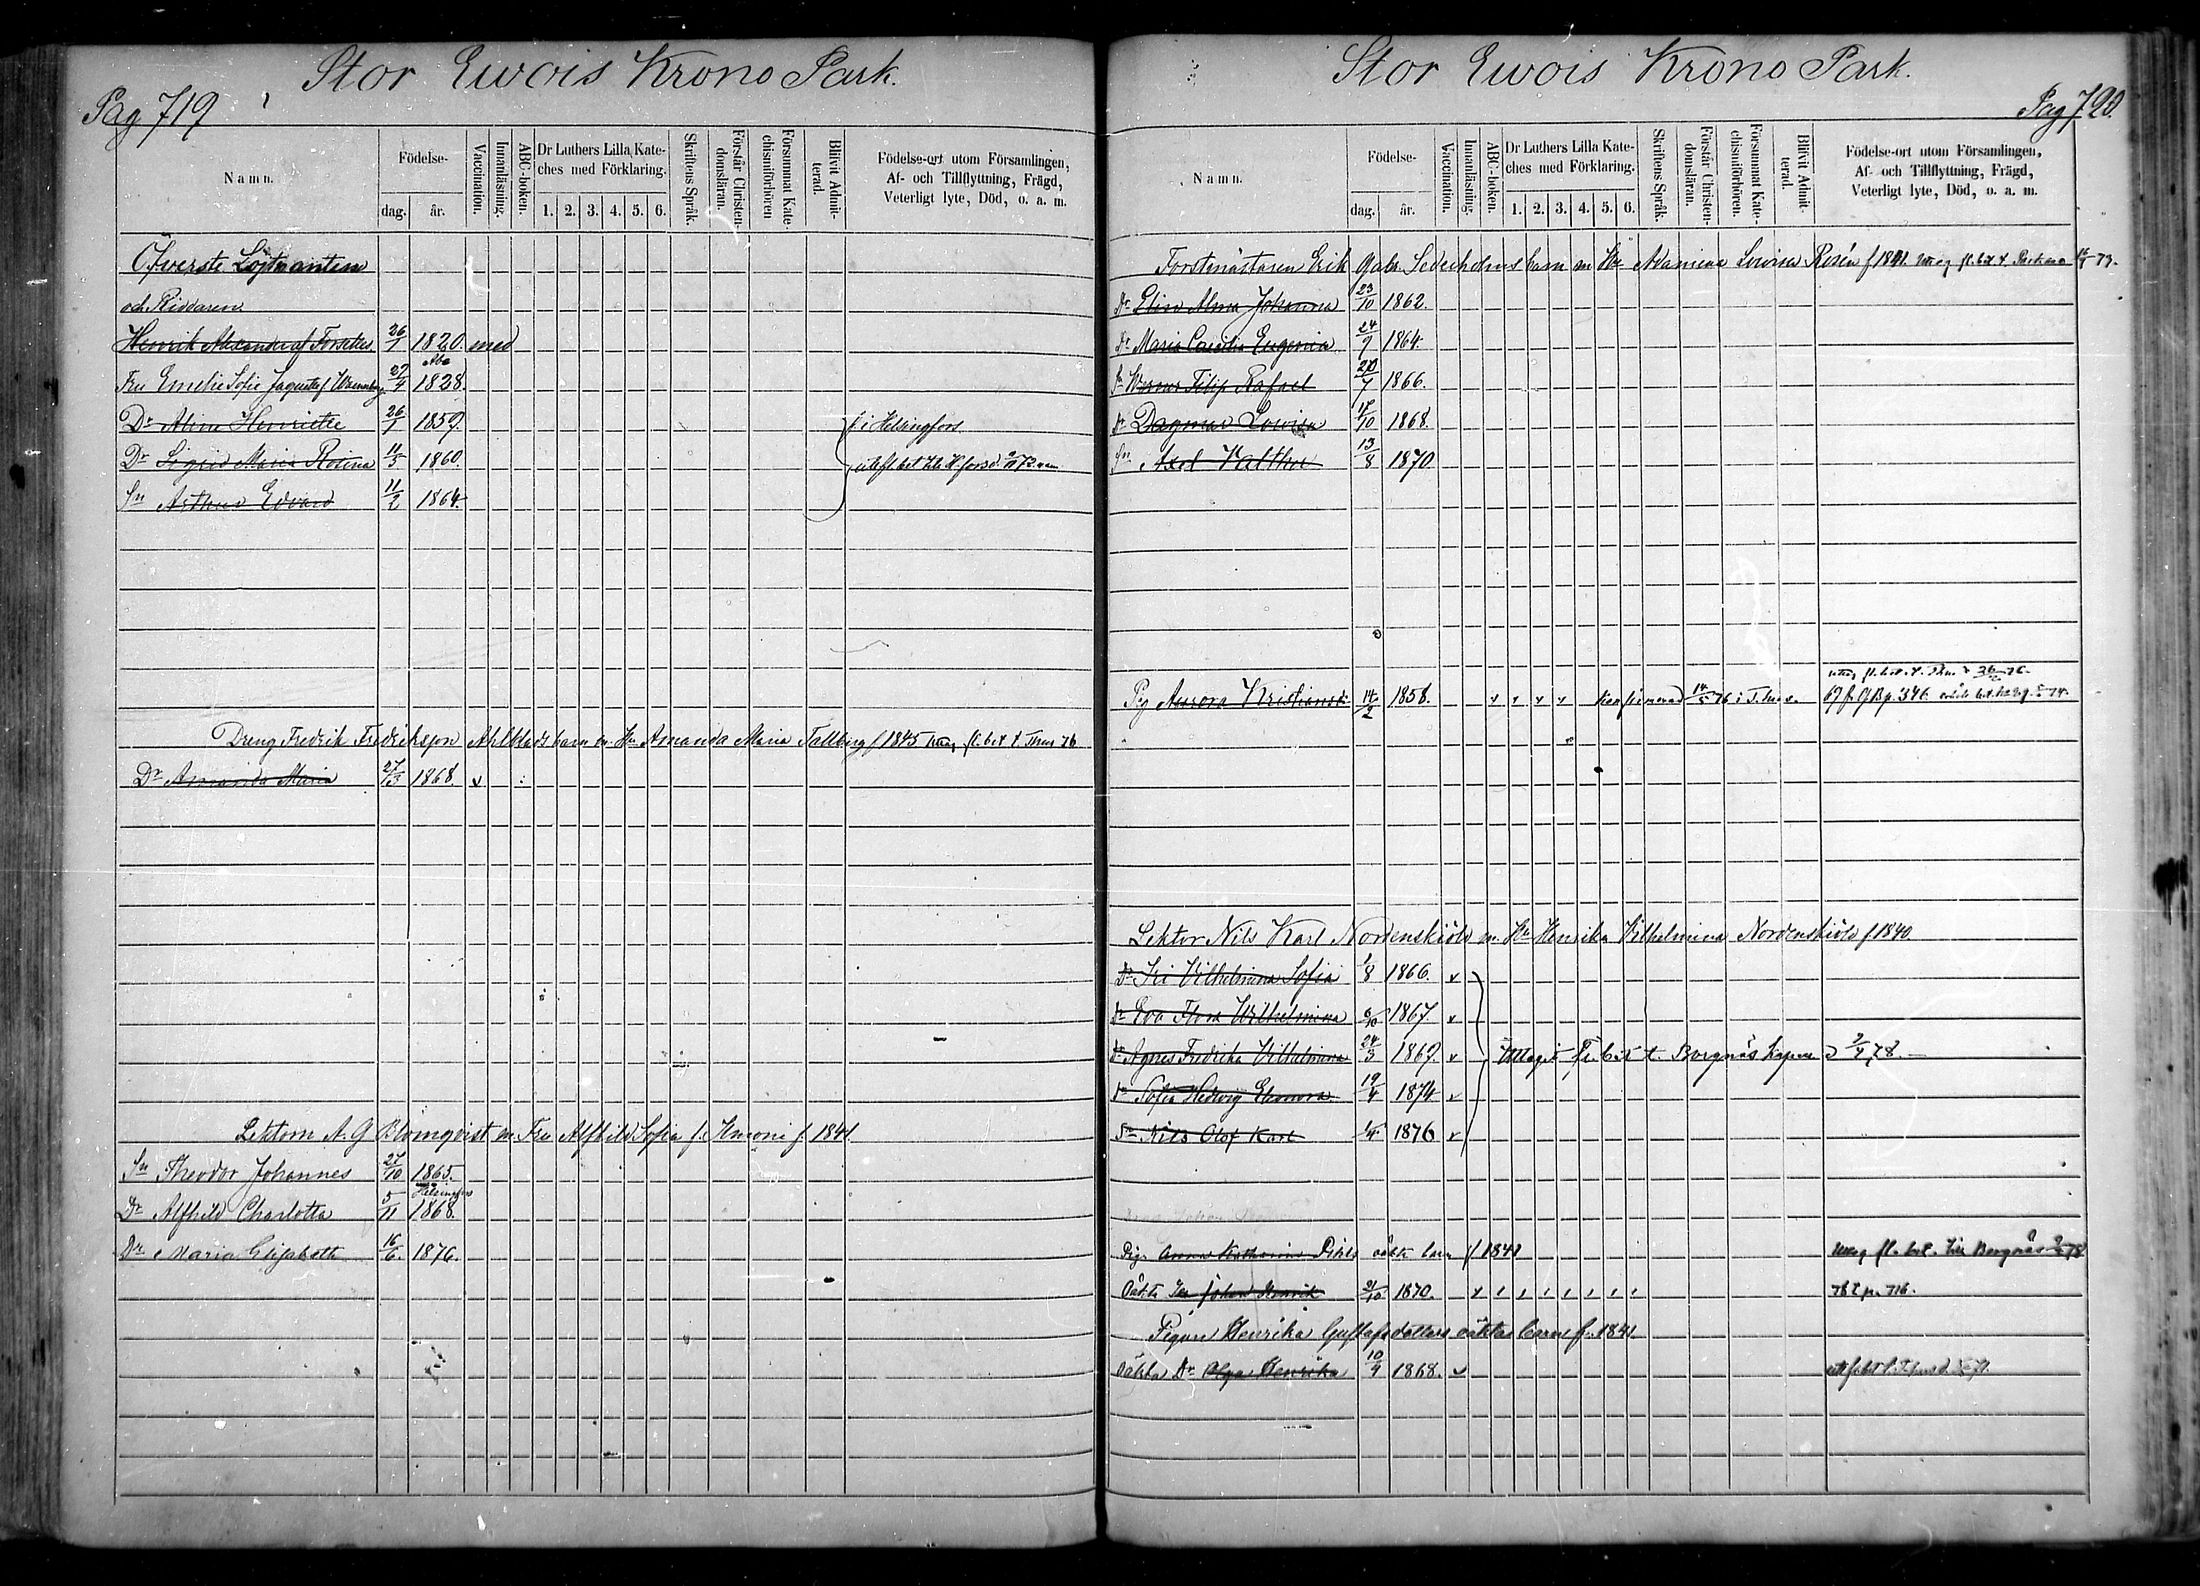 Stor Ewois Krono Park.
Pag 719
Namn.
Födelse-
dag. år.
Vaccination.
Innanläsning.
ABC-boken.
Dr Luthers Lilla Kate-
ches med Förklaring.
1. 2. 3. 4. 5. 6.
Skriftens Språk.
Förstår Christen-
domsläran.
Försummat Kate-
chismiförhören
Blifvit Admit-
terad.
Födelse-ort utom Församlingen,
Af- och Tillflyttning, Frägd,
Veterligt lyte, Död, o. a. m.
Öfverste Löjtnanten
och Riddaren
Henrik Alexander af Forselles 26/1 1820. med
Åbo
Fru Emelie Sofie Jaquette f. 27/4 1828.
Dr Aline Henriette 26/1 1859. f. i Helsingfors
Dr Sigrid Maria Rosina 11/5 1860.
Sn Arthur Edvard 11/2 1864.
Dreng Fredrik Fredriksson Ahlblads barn m. Hu Amanda Maria Tallberg f 1845 uttag fl. bet t. Thus 76
Dr Amanda Maria 27/3 1868. v
Lektorn A. G Blomqvist m. Fru Alfhild Sofia f. Kuroni f. 1841.
Sn Theodor Johannes 27/10 1865.
Helsingfors
Dr Alfhild Charlotta 5/11 1868.
Dr Maria Elisabeth 16/6 1876.
Stor Ewois Krono Park.
Pag 720.
Namn.
Födelse-
dag. år.
Vaccination.
Innanläsning.
ABC-boken.
Dr Luthers Lilla Kate-
ches med Förklaring.
1. 2. 3. 4. 5. 6.
Skriftens Språk.
Förstår Christen-
domsläran.
Försummat Kate-
chismiförhören.
Blifvit Admit-
terad.
Födelse-ort utom Församlingen,
Af- och Tillflyttning, Frägd,
Veterligt lyte, Död, o. a. m.
Forstmästaren Erik Gabr. Sederholms barn m. Hu Adamina Lovisa Rosén f 1841. uttag fl. bet t. 73.
Dr Elin Alma Johanna 23/10 1862.
Dr Maria Caecilia Eugenia 24/9 1864.
Sn Werner Filip Rafael 20/7 1866.
Dr Dagmar Lovisa 17/10 1868.
Sn Axel Valthe 13/8 1870.
uttag fl. bet. t. Thus 76.
Pig Aurora Kristiansd. 14/2 1858. v v v v Konfirmerad 14/5 76 i T. hus. 67 fr. Bp. 346.
Lektor Nils Karl Nordenskiöld m. Hu Henrika Vilhelmina Nordenskiöld f 1840.
Dr Iri Vilhelmina Sofia 1/8 1866. v
Dr Eva Flora Wilhelmina 6/10 1867. v
Dr Agnes Fredrika Vilhelmina 24/3 1869. v Uttagit Fl. bet t. Borgnäs kapell d 2/4 78.
Dr Sofia Hedvig Eleonora 19/4 1874 v
Sn Nils Olof Karl 1876 v
Pig. Anna Katharina oäkta barn f 1841 uttag fl. bet. till Borgnäs 78
Oäkta Sn Johan Henrik 21/10 1870. v 78 t. p. 716.
Pigan Henrika Gustafsdotters oäkta barn f. 1841
Oäkta Dr Olga Henrika 10/9 1868. v